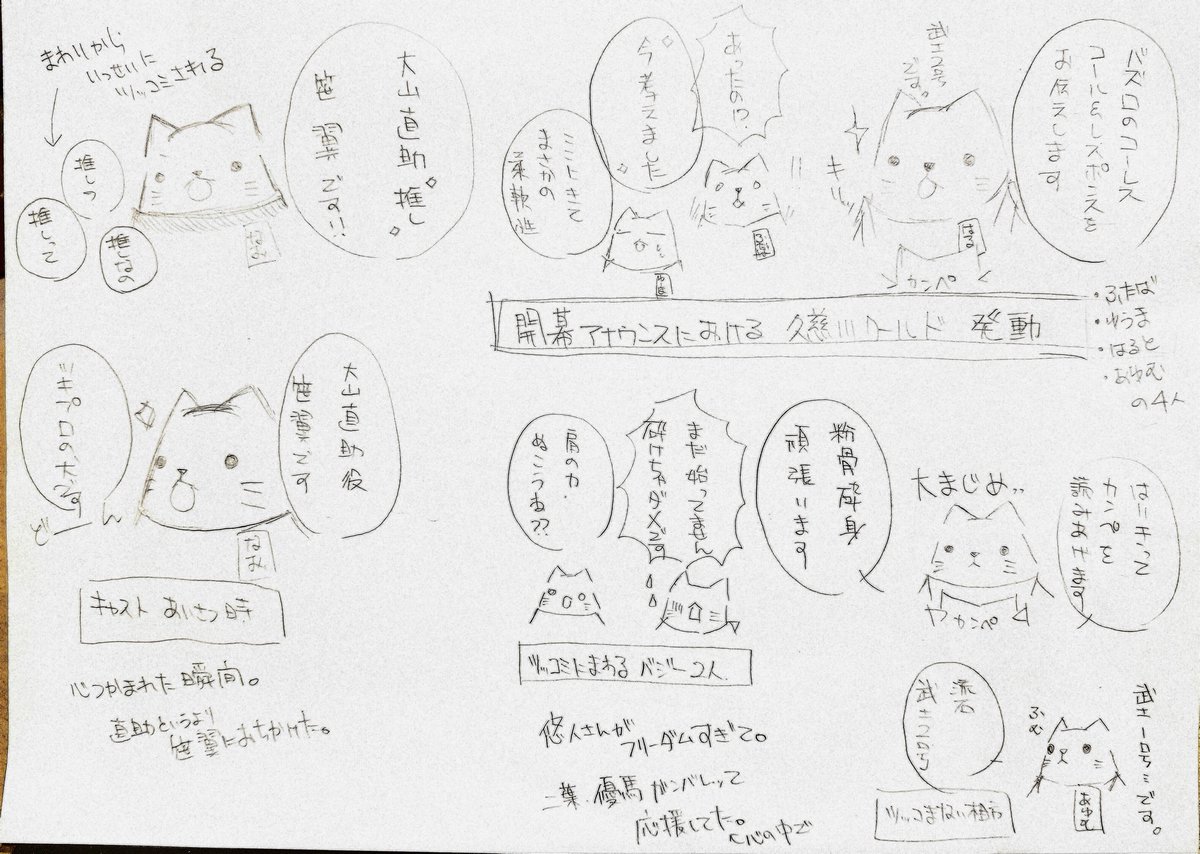 バズロのコーレス
コール&レスポンスを
お伝えします
武士2号
です。
キリッ
はる
カンペ
あったの!?
今考えました
ここにきて
まさかの
柔軟性
開幕アナウンスにおける 久慈川ワールド 発動
・ふたば
・ゆうま
・はると
・あゆむ
の4人
はにキって
カンペを
読みあげます
大まじめ
カンペ
粉骨砕身
頑張います
まだ始ってません
砕けちゃダメです
肩の力
ぬこうね??
ツッコミにまわる バジー2人
悠人さんが
フリーダムすぎて。
二葉、優馬 ガンバレッて
応援してた。心の中で
武士一号ミです。
ふむ
あゆむ
流石
武士2号
ツッコまない相方
まわりから
いっせいに
ツッコミされる
大山直助推し
笹翼です!!
推しっ
推しって
推しなの
大山直助役
笹翼です
どーん
キャスト あいさつ時
心つかまれた瞬間。
直助というより
笹翼におちかけた。